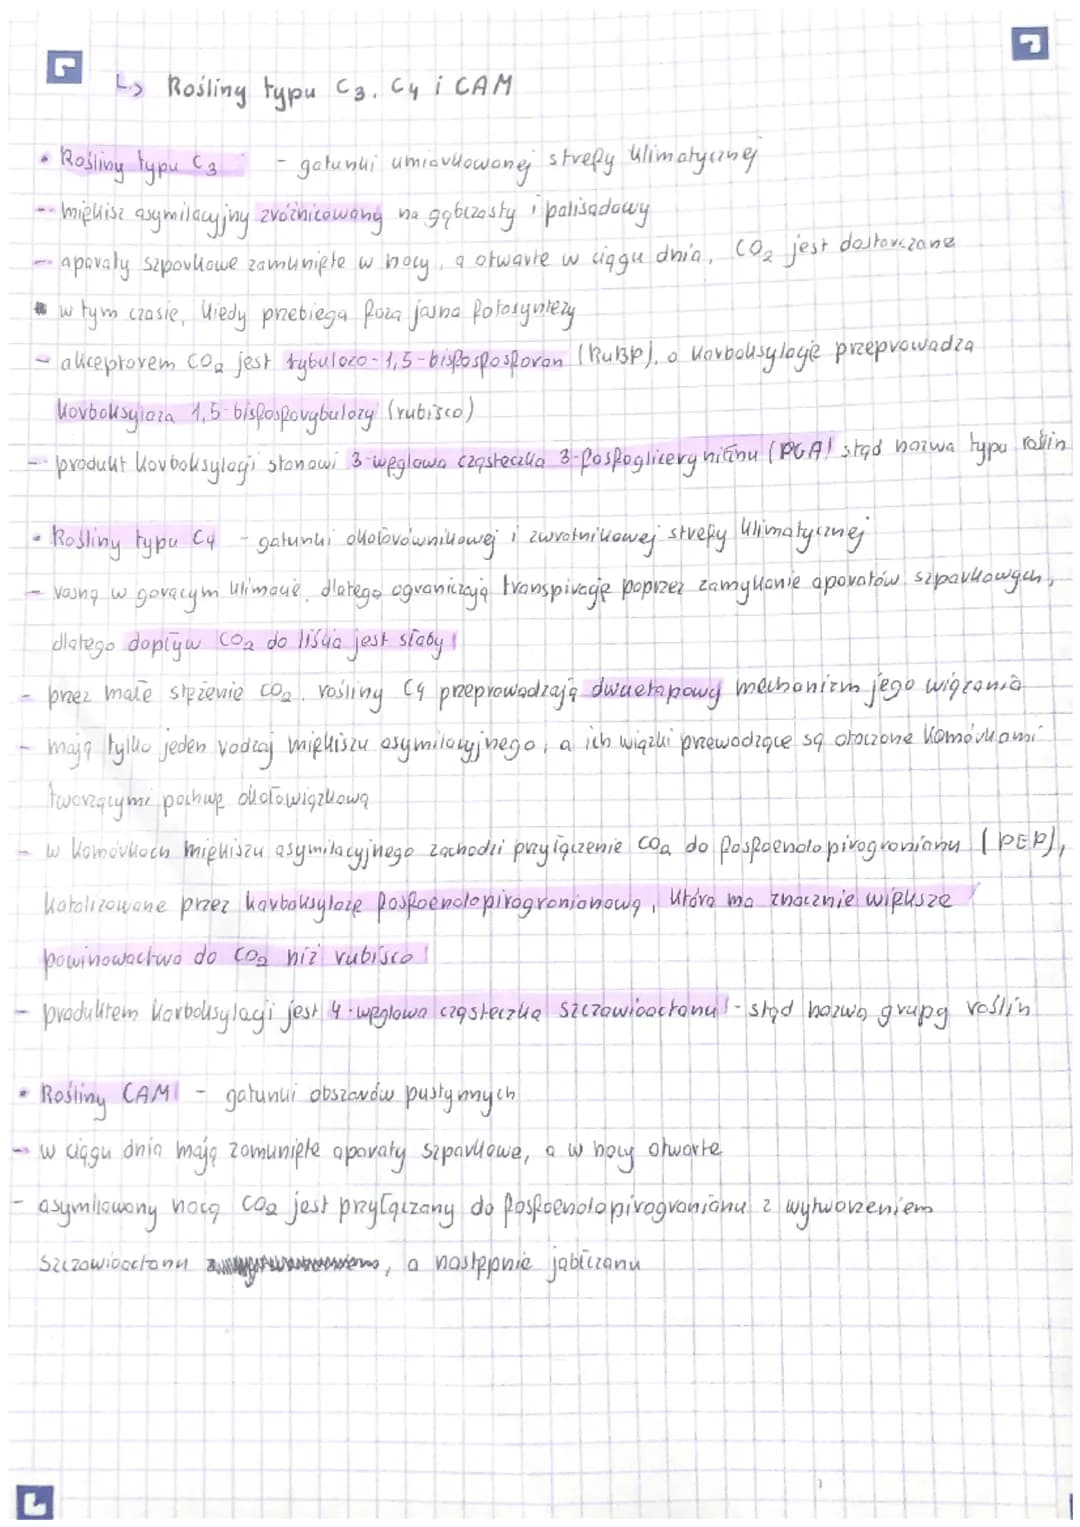 ↳ Rośliny typu C3, C4 i CAM
• Rośliny typu C3 - gatunki umiarkowanej strefy klimatycznej
- miękisz asymilacyjny zróżnicowany na gąbczasty i palisadowy
- aparaty szparkowe zamknięte w nocy, a otwarte w ciągu dnia, CO2 jest dostarczane
w tym czasie, kiedy przebiega faza jasna fotosyntezy
- akceptorem CO2 jest rybulozo-1,5-bisfosfosforan (RuBP), a karboksylację przeprowadza
karboksylaza 1,5-bisfosforybulozy (rubisco)
- produkt karboksylacji stanowi 3-węglowa cząsteczka 3-fosfoglicerynianu (PGA) stąd nazwa typu roślin
• Rośliny typu C4 - gatunki okołorównikowej i zwrotnikowej strefy klimatycznej
- rosną w gorącym klimacie, dlatego ograniczają transpirację poprzez zamykanie aparatów szparkowych,
dlatego dopływ CO2 do liścia jest słaby
- przez małe stężenie CO2, rośliny C4 przeprowadzają dwuetapowy mechanizm jego wiązania
- mają tylko jeden rodzaj miękiszu asymilacyjnego, a ich wiązki przewodzące są otoczone komórkami
tworzącymi pochwę okołowiązkową
- w komórkach miękiszu asymilacyjnego zachodzi przyłączenie CO2 do fosfoenolopirogronianu (PEP),
katalizowane przez karboksylazę fosfoenolopirogronianową, która ma znacznie większe
powinowactwo do CO2 niż rubisco
- produktem karboksylacji jest 4-węglowa cząsteczka szczawiooctanu - stąd nazwa grupy roślin
• Rośliny CAM - gatunki obszarów pustynnych
- w ciągu dnia mają zamknięte aparaty szparkowe, a w nocy otwarte
- asymilowany nocą CO2 jest przyłączany do fosfoenolopirogronianu z wytworzeniem
szczawiooctanu, a następnie jabłczanu